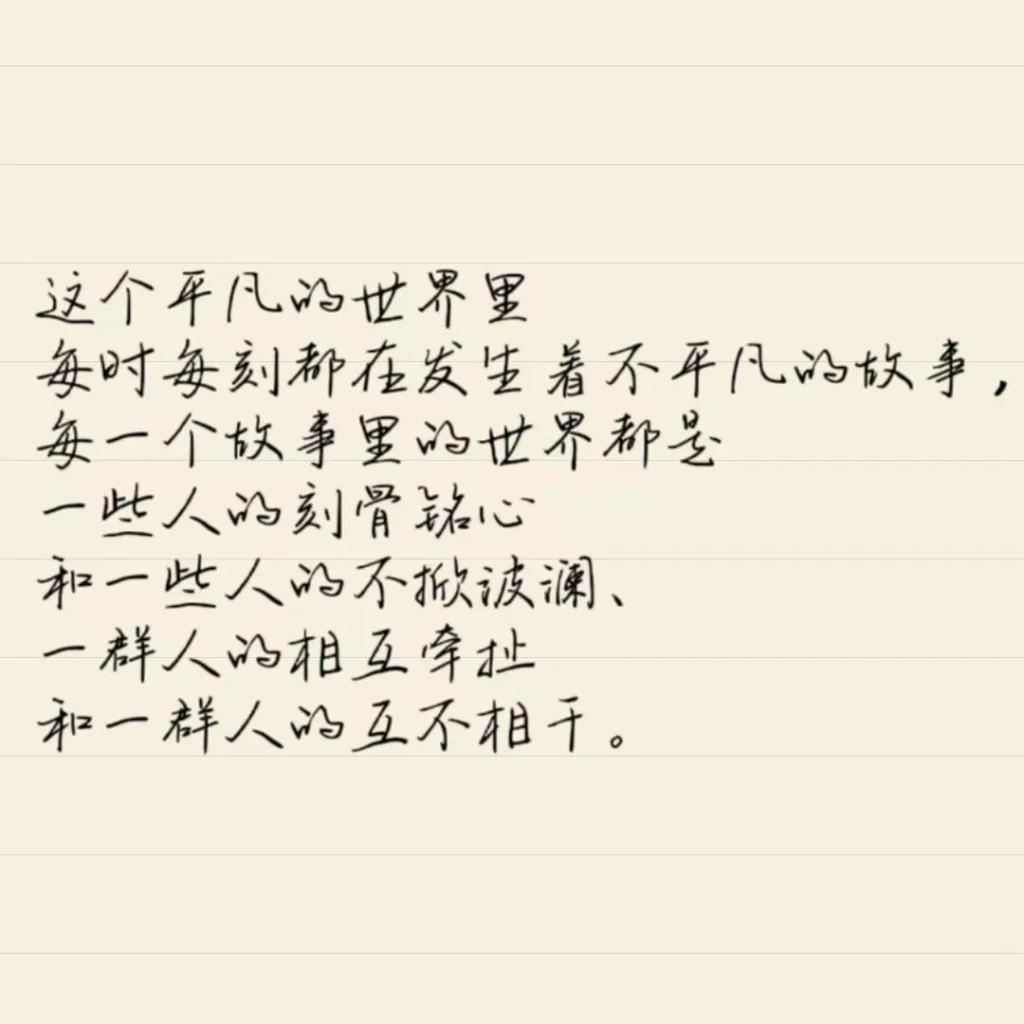 这个平凡的世界里
每时每刻都在发生着不平凡的故事，
每一个故事里的世界都是
一些人的刻骨铭心
和一些人的不掀波澜、
一群人的相互牵扯
和一群人的互不相干。